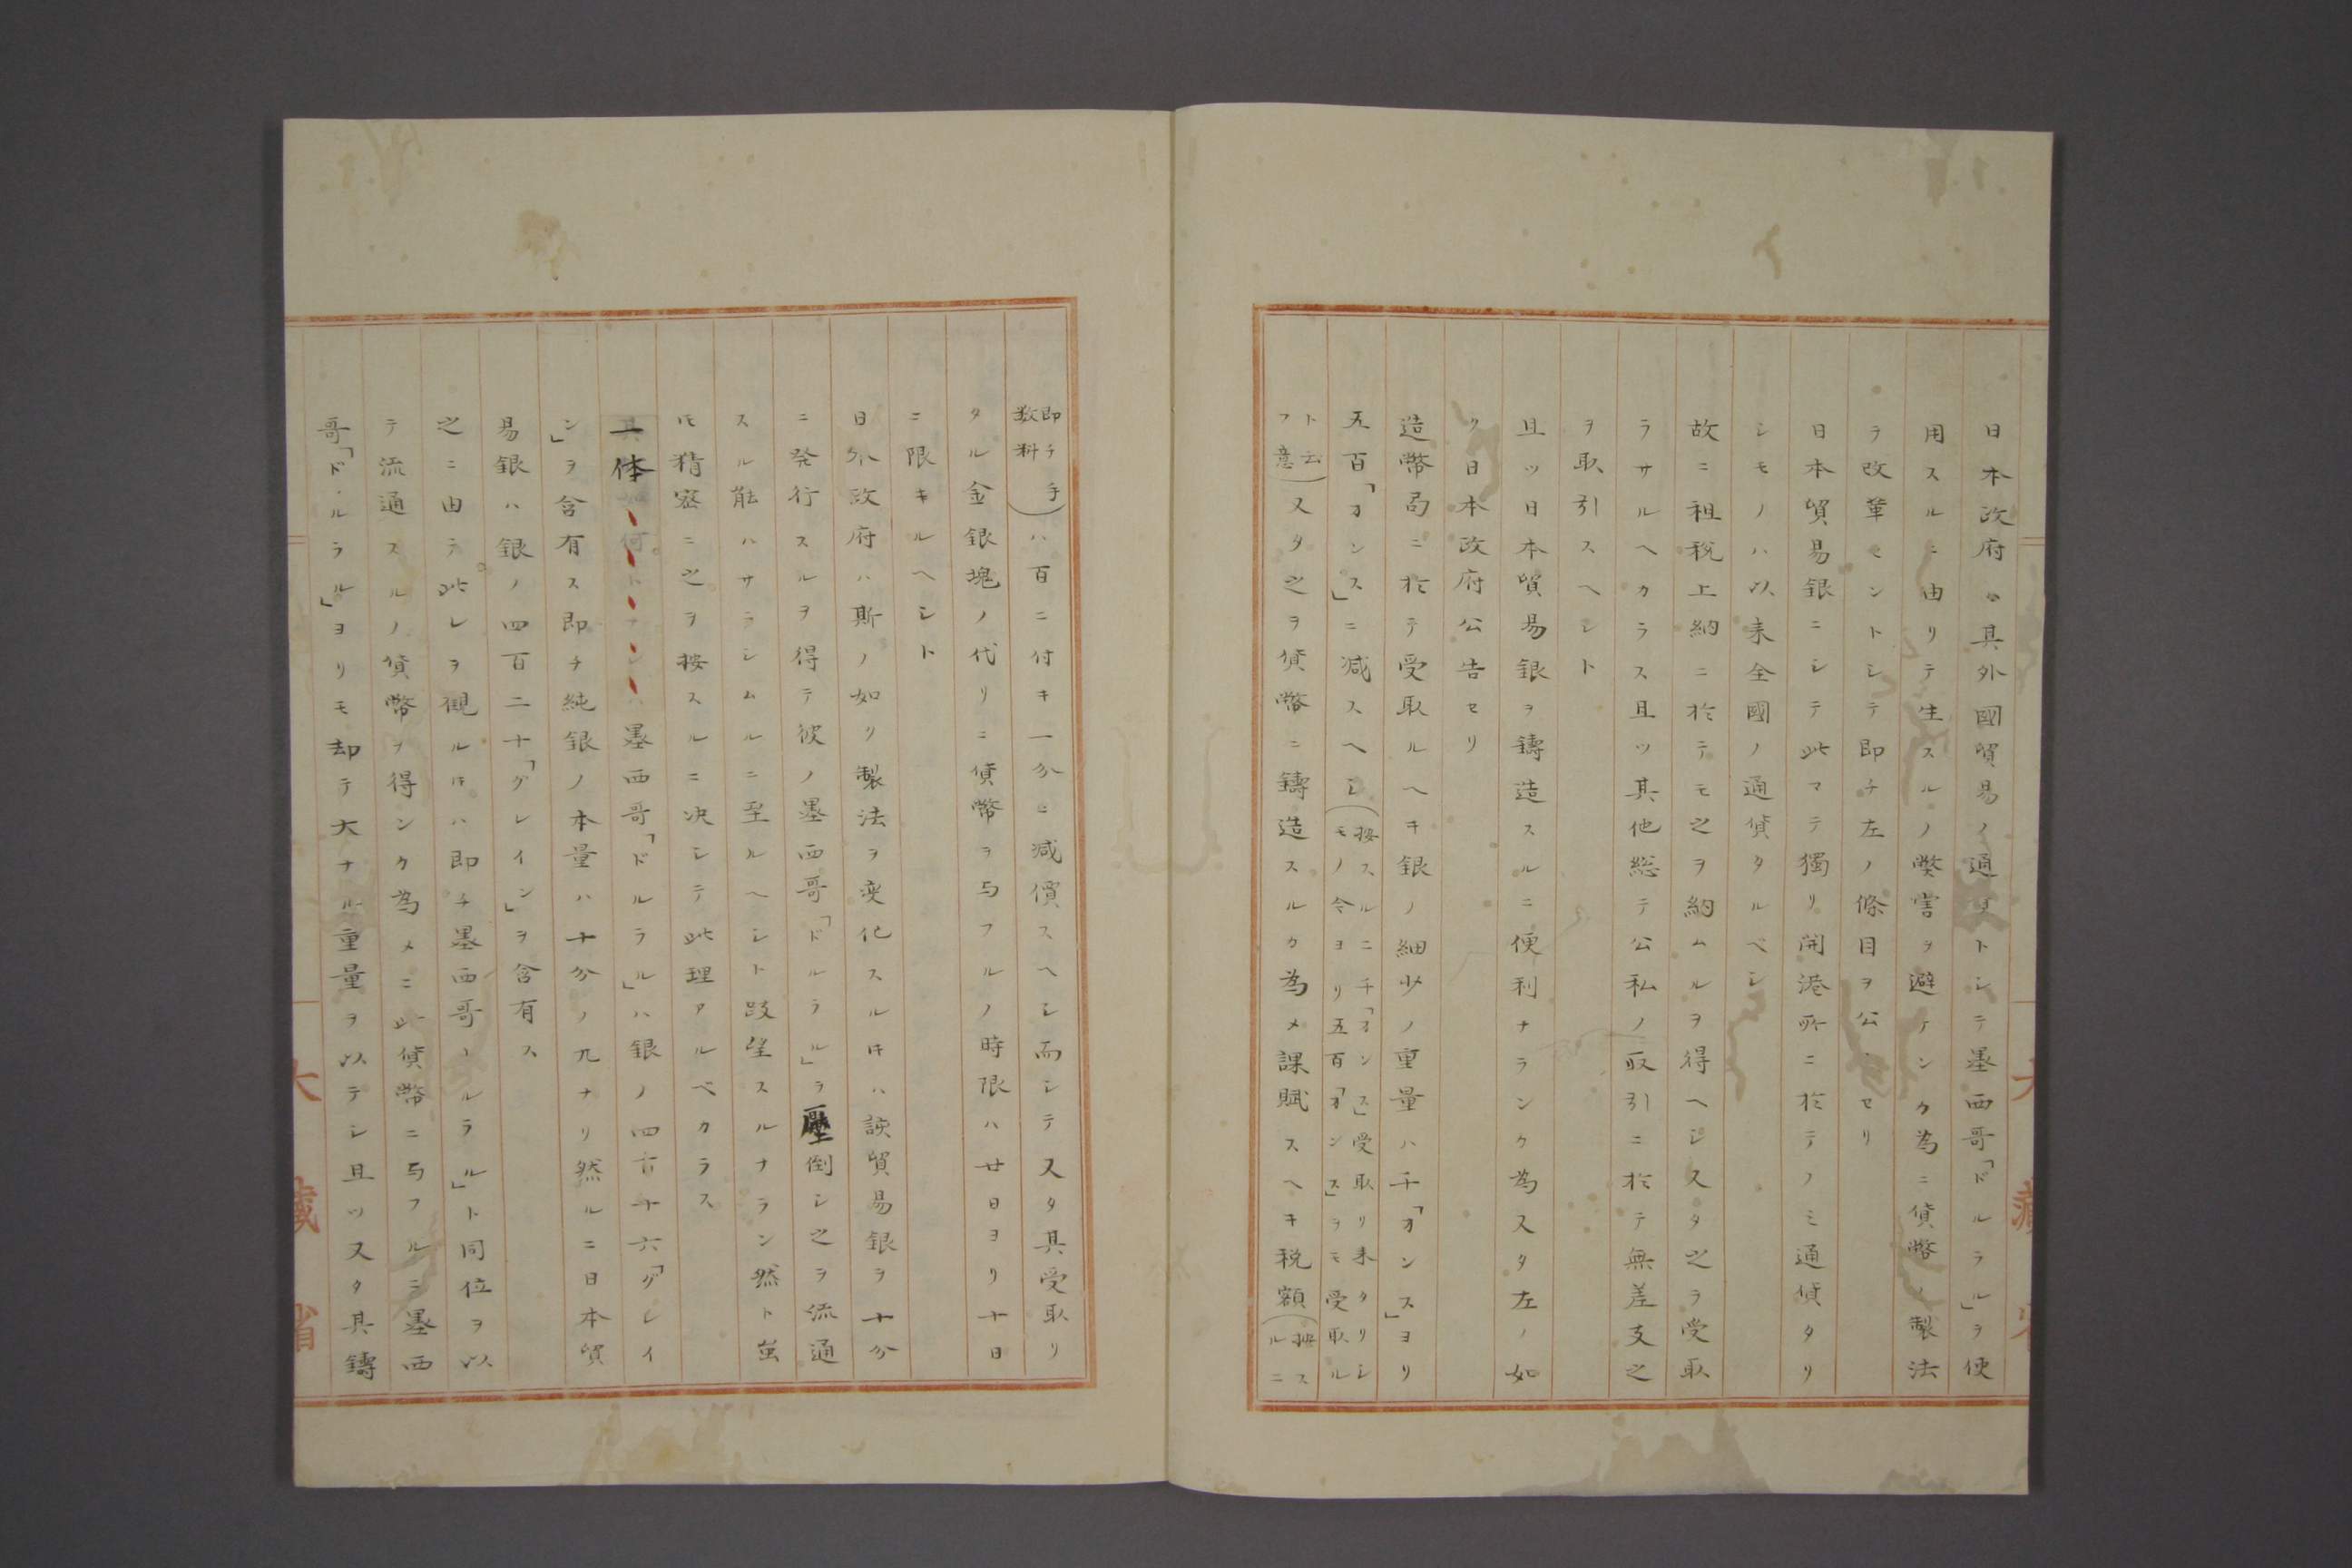 日本政府ハ其外國貿易ノ通貨トシテ墨西哥「ドルラル」ヲ使
用スルニ由リテ生スルノ弊害ヲ避ケンカ為ニ貨幣ノ製法
ヲ改革センドシテ即チ左ノ條目ヲ公ニセリ
日本貿易銀ニシテ此マテ獨リ開港所ニ於テノミ通貨タリ
シモノハ以来全國ノ通貨タルベシ
故ニ租税上納ニ於テモ之ヲ納ムルヲ得ヘシ又タ之ヲ受取
ラサルヘカラス且ツ其他総テ公私ノ取引ニ於テ無差支之
ヲ取引スヘシト
且ツ日本貿易銀ヲ鑄造スルニ便利ナランカ為又タ左ノ如
ク日本政府公告セリ
造幣局ニ於テ受取ルヘキ銀ノ細少ノ重量ハ千「オンス」ヨリ
五百「オンス」ニ減スヘシ(按スルニ千「オンス」受取リ来タリシ
モノ今ヨリ五百「オンス」ヲモ受取ル
ト云
フ意)又タ之ヲ貨幣ニ鑄造スルカ為メ課賦スヘキ税額(按ス
ルニ
即チ手
数料)ハ百ニ付キ一分ニ減價スヘシ而シテ又タ其受取リ
タル金銀塊ノ代リニ貨幣ヲ与フルノ時限ハ廿日ヨリ十日
ニ限キルヘシト
日本政府ハ斯ノ如ク製法ヲ変化スルトキハ該貿易銀ヲ十分
ニ発行スルヲ得テ彼ノ墨西哥「ドルラル」ヲ壓倒シ之ヲ流通
スル能ハサラシムルニ至ルヘシト跂望スルナラン然ト虽
𪜈精密ニ之ヲ按スルニ决シテ此理アルベカラス
一体墨西哥「ドルラル」ハ銀ノ四百十六「グレイ
ン」ヲ含有ス即チ純銀ノ本量ハ十分ノ九ナリ然ルニ日本貿
易銀ハ銀ノ四百二十「グレイン」ヲ含有ス
之ニ由テ此レヲ観ルトキハ即チ墨西哥ドルラル」ト同位ヲ以
テ流通スルノ貨幣ヲ得ンカ為メニ此貨幣ニ与フルニ墨西
哥「ドルラル」ヨリモ却テ大ナル重量ヲ以テシ且ツ又タ其鑄
大藏省